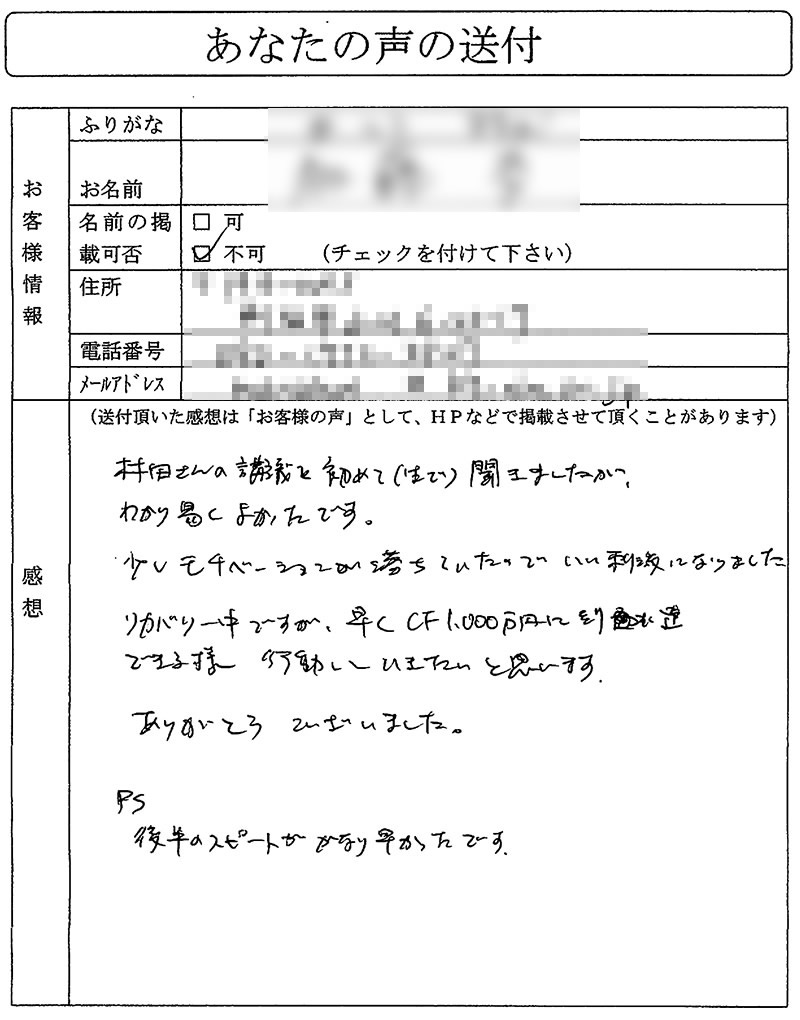 あなたの声の送付
お客様情報
ふりがな
お名前
名前の掲載可否
□ 可
☑ 不可 (チェックを付けて下さい)
住所
電話番号
メールアドレス
感想
(送付頂いた感想は「お客様の声」として、HPなどで掲載させて頂くことがあります)
村田さんの講義を初めて(生で)聞きましたが、
わかり易くよかったです。
少しモチベーションが落ちていたのでいい刺激になりました
リカバリー中ですが、早くCF1,000万円に到達
できる様 行動していきたいと思います。
ありがとうございました。
PS
後半のスピードがかなり早かったです。